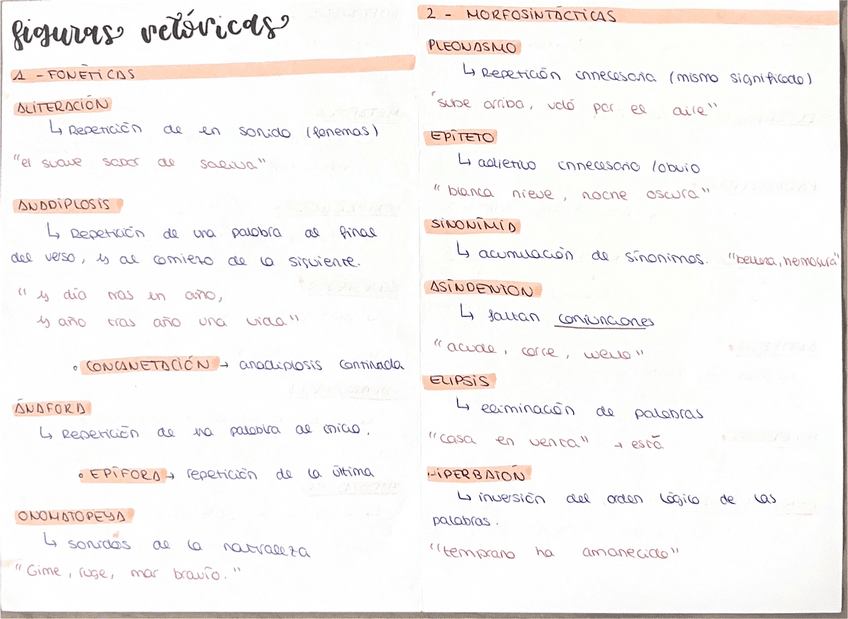 figuras retóricas
1 - FONÉTICAS
ALITERACIÓN
↳ Repetición de en sonido (fonemas)
"el suave sabor de saliva"
ANADIPLOSIS
↳ Repetición de una palabra al final
del verso, y al comiezo de la siguiente.
" y día tras en año,
y año tras año una vida"
• CONCANETACIÓN → anadiplosis continada
ÁNAFORA
↳ Repetición de una palabra al inicio.
• EPÍFORA → repetición de la última
ONOMATOPEYA
↳ sonidos de la naturaleza
"Gime, ruge, mar bravío."
2 - MORFOSINTÁCTICAS
PLEONASMO
↳ Repetición innecesaria (mismo significado)
"sube arriba, voló por el aire"
EPÍTETO
↳ adjetivo innecesario /obvio
"blanca nieve, noche oscura"
SINONÍMIA
↳ acumulación de sínonimos. "belleza, hermosura"
ASÍNDENTON
↳ faltan conjunciones
"acude, corre, vuelo"
ELIPSIS
↳ eliminación de palabras
"casa en venta" → está
HIPERBATÓN
↳ inversión del orden lógico de las
palabras.
"temprano ha amanecido"